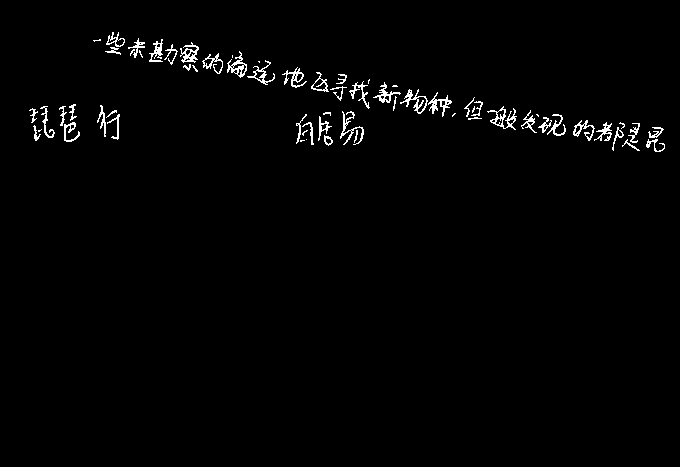 一些未勘察的偏远地区寻找新物种,但一般发现的都是昆
琵琶行 白居易